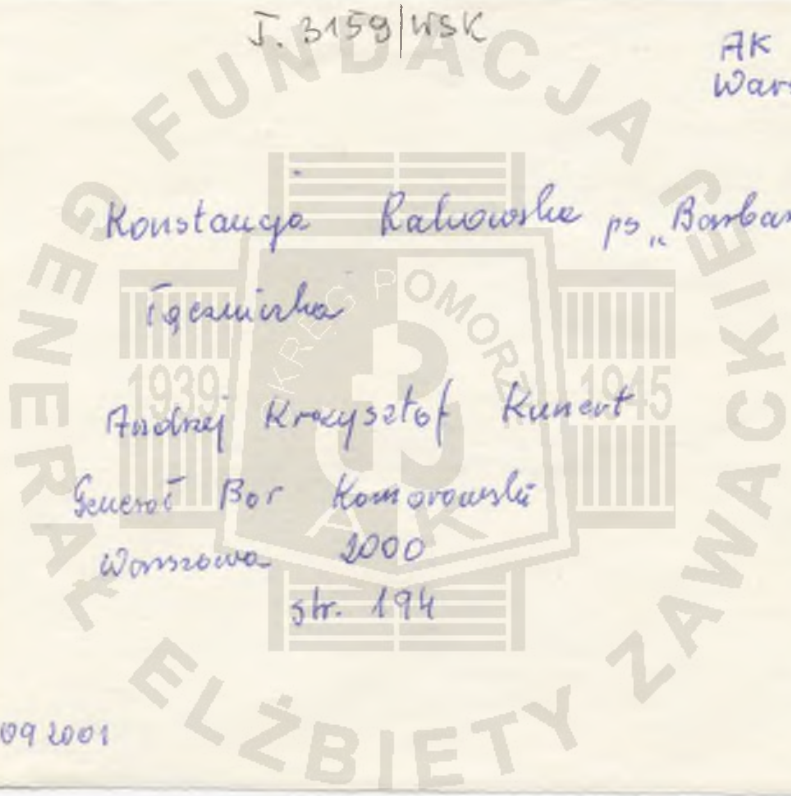 J. 3159/WSK
AK
Wars
Konstancja Rakowska ps. „Barbar
Łączniczka
Andrzej Krzysztof Kunert
Generał Bor Komorowski
Warszawa 2000
str. 194
09 2001
FUNDACJA GENERAŁ ELŻBIETY ZAWACKIEJ
OKRĘG POMORZE
1939 1945
AK